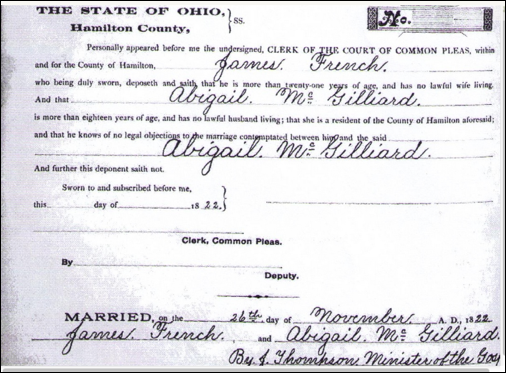 THE STATE OF OHIO, } SS. No.
Hamilton County,
Personally appeared before me the undersigned, CLERK OF THE COURT OF COMMON PLEAS, within
and for the County of Hamilton, James. French.
who being duly sworn, deposeth and saith that he is more than twenty-one years of age, and has no lawful wife living.
And that Abigail. Mc Gilliard.
is more than eighteen years of age, and has no lawful husband living; that she is a resident of the County of Hamilton aforesaid;
and that he knows of no legal objections to the marriage contemplated between him and the said
Abigail. Mc Gilliard.
And further this deponent saith not.
Sworn to and subscribed before me,
this day of 1822.
Clerk, Common Pleas.
By
Deputy.
MARRIED, on the 26th. day of November. A. D., 1822
James. French. and Abigail. Mc Gilliard.
By J. Thomhson. Minister of the Gos